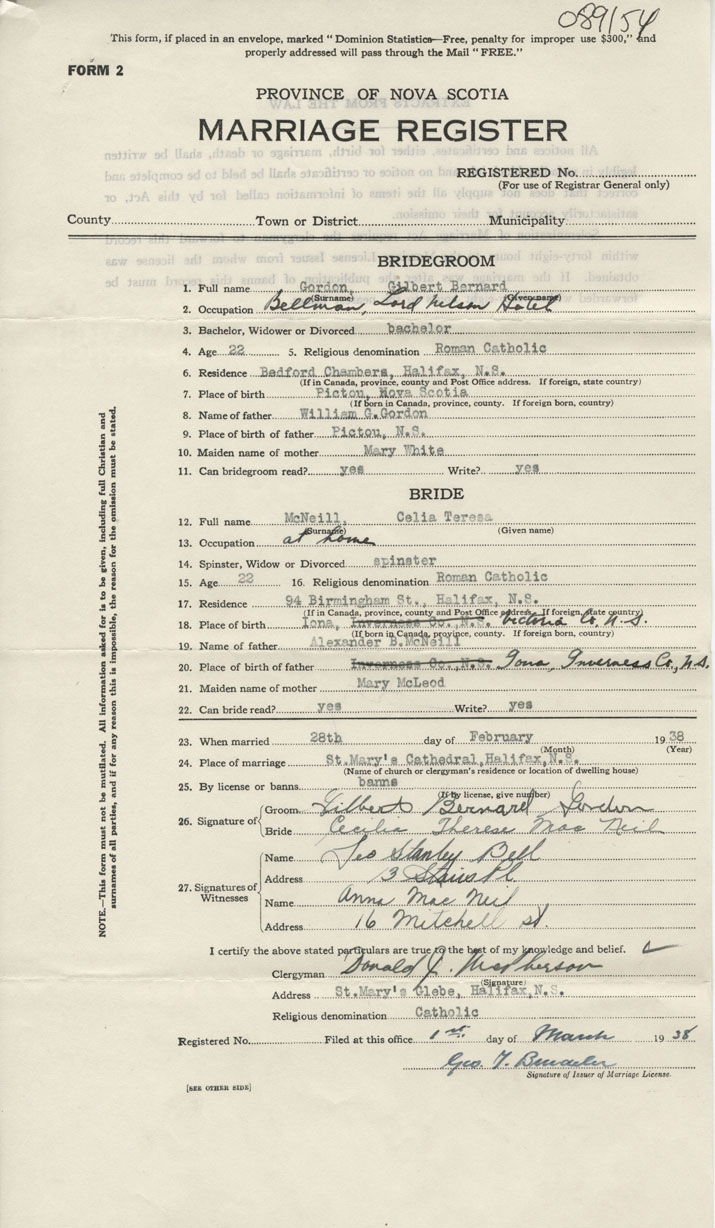 089154
This form, if placed in an envelope, marked “Dominion Statistics—Free, penalty for improper use $300,” and
properly addressed will pass through the Mail “FREE.”
FORM 2
PROVINCE OF NOVA SCOTIA
MARRIAGE REGISTER
REGISTERED No.
(For use of Registrar General only)
County Town or District Municipality
BRIDEGROOM
1. Full name Gordon, Gilbert Bernard
(Surname) (Given name)
2. Occupation Bellman, Lord Nelson Hotel
3. Bachelor, Widower or Divorced bachelor
4. Age 22 5. Religious denomination Roman Catholic
6. Residence Bedford Chambers, Halifax, N.S.
(If in Canada, province, county and Post Office address. If foreign, state country)
7. Place of birth Pictou, Nova Scotia
(If born in Canada, province, county. If foreign born, country)
8. Name of father William G.Gordon
9. Place of birth of father Pictou, N.S.
10. Maiden name of mother Mary White
11. Can bridegroom read? yes Write? yes
BRIDE
12. Full name McNeill, Celia Teresa
(Surname) (Given name)
13. Occupation at home
14. Spinster, Widow or Divorced spinster
15. Age 22 16. Religious denomination Roman Catholic
17. Residence 94 Birmingham St., Halifax, N.S.
(If in Canada, province, county and Post Office address. If foreign, state country)
18. Place of birth Iona, Inverness Co., N.S. Victoria Co. N.S.
(If born in Canada, province, county. If foreign born, country)
19. Name of father Alexander B.McNeill
20. Place of birth of father Inverness Co., N.S. Iona, Inverness Co., N.S.
21. Maiden name of mother Mary McLeod
22. Can bride read? yes Write? yes
23. When married 28th day of February 1938
(Month) (Year)
24. Place of marriage St.Mary's Cathedral,Halifax,N.S.
(Name of church or clergyman's residence or location of dwelling house)
25. By license or banns banns
(If by license, give number)
26. Signature of Groom Gilbert Bernard Gordon
Bride Cecilia Therese Mac Neil
27. Signatures of Witnesses Name Leo Stanley Bell
Address 3 Pl
Name Anna Mac Neil
Address 16 Mitchell st.
I certify the above stated particulars are true to the best of my knowledge and belief.
Clergyman Donald J. McPherson
(Signature)
Address St.Mary's Glebe, Halifax,N.S.
Religious denomination Catholic
Registered No. Filed at this office 1st. day of March 1938
Geo. F.
Signature of Issuer of Marriage License.
[SEE OTHER SIDE]
NOTE.—This form must not be mutilated. All information asked for is to be given, including full Christian and
surnames of all parties, and if for any reason this is impossible, the reason for the omission must be stated.